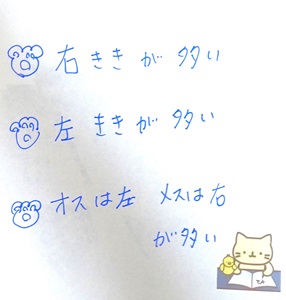 右ききが多い
左ききが多い
オスは左 メスは右
が多い